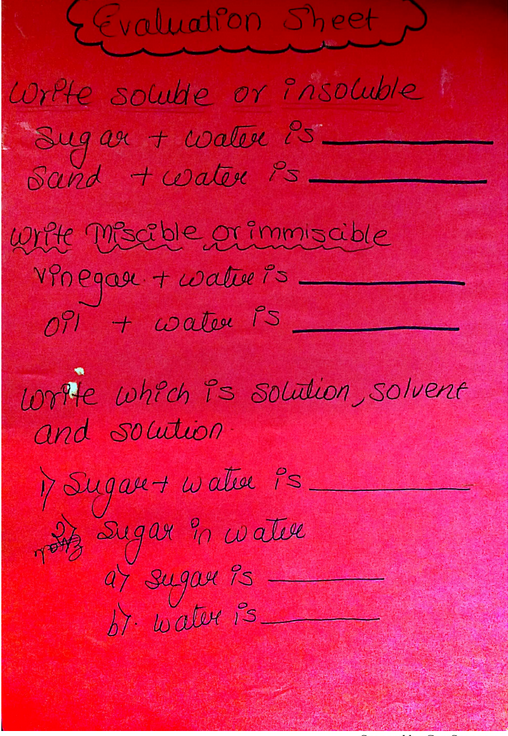 Evaluation Sheet
Write soluble or insoluble
Sugar + water is
Sand + water is
Write Miscible or immiscible
Vinegar + water is
Oil + water is
Write which is solution, solvent
and solution
1) Sugar + water is
2) Sugar in water
a) sugar is
b) water is